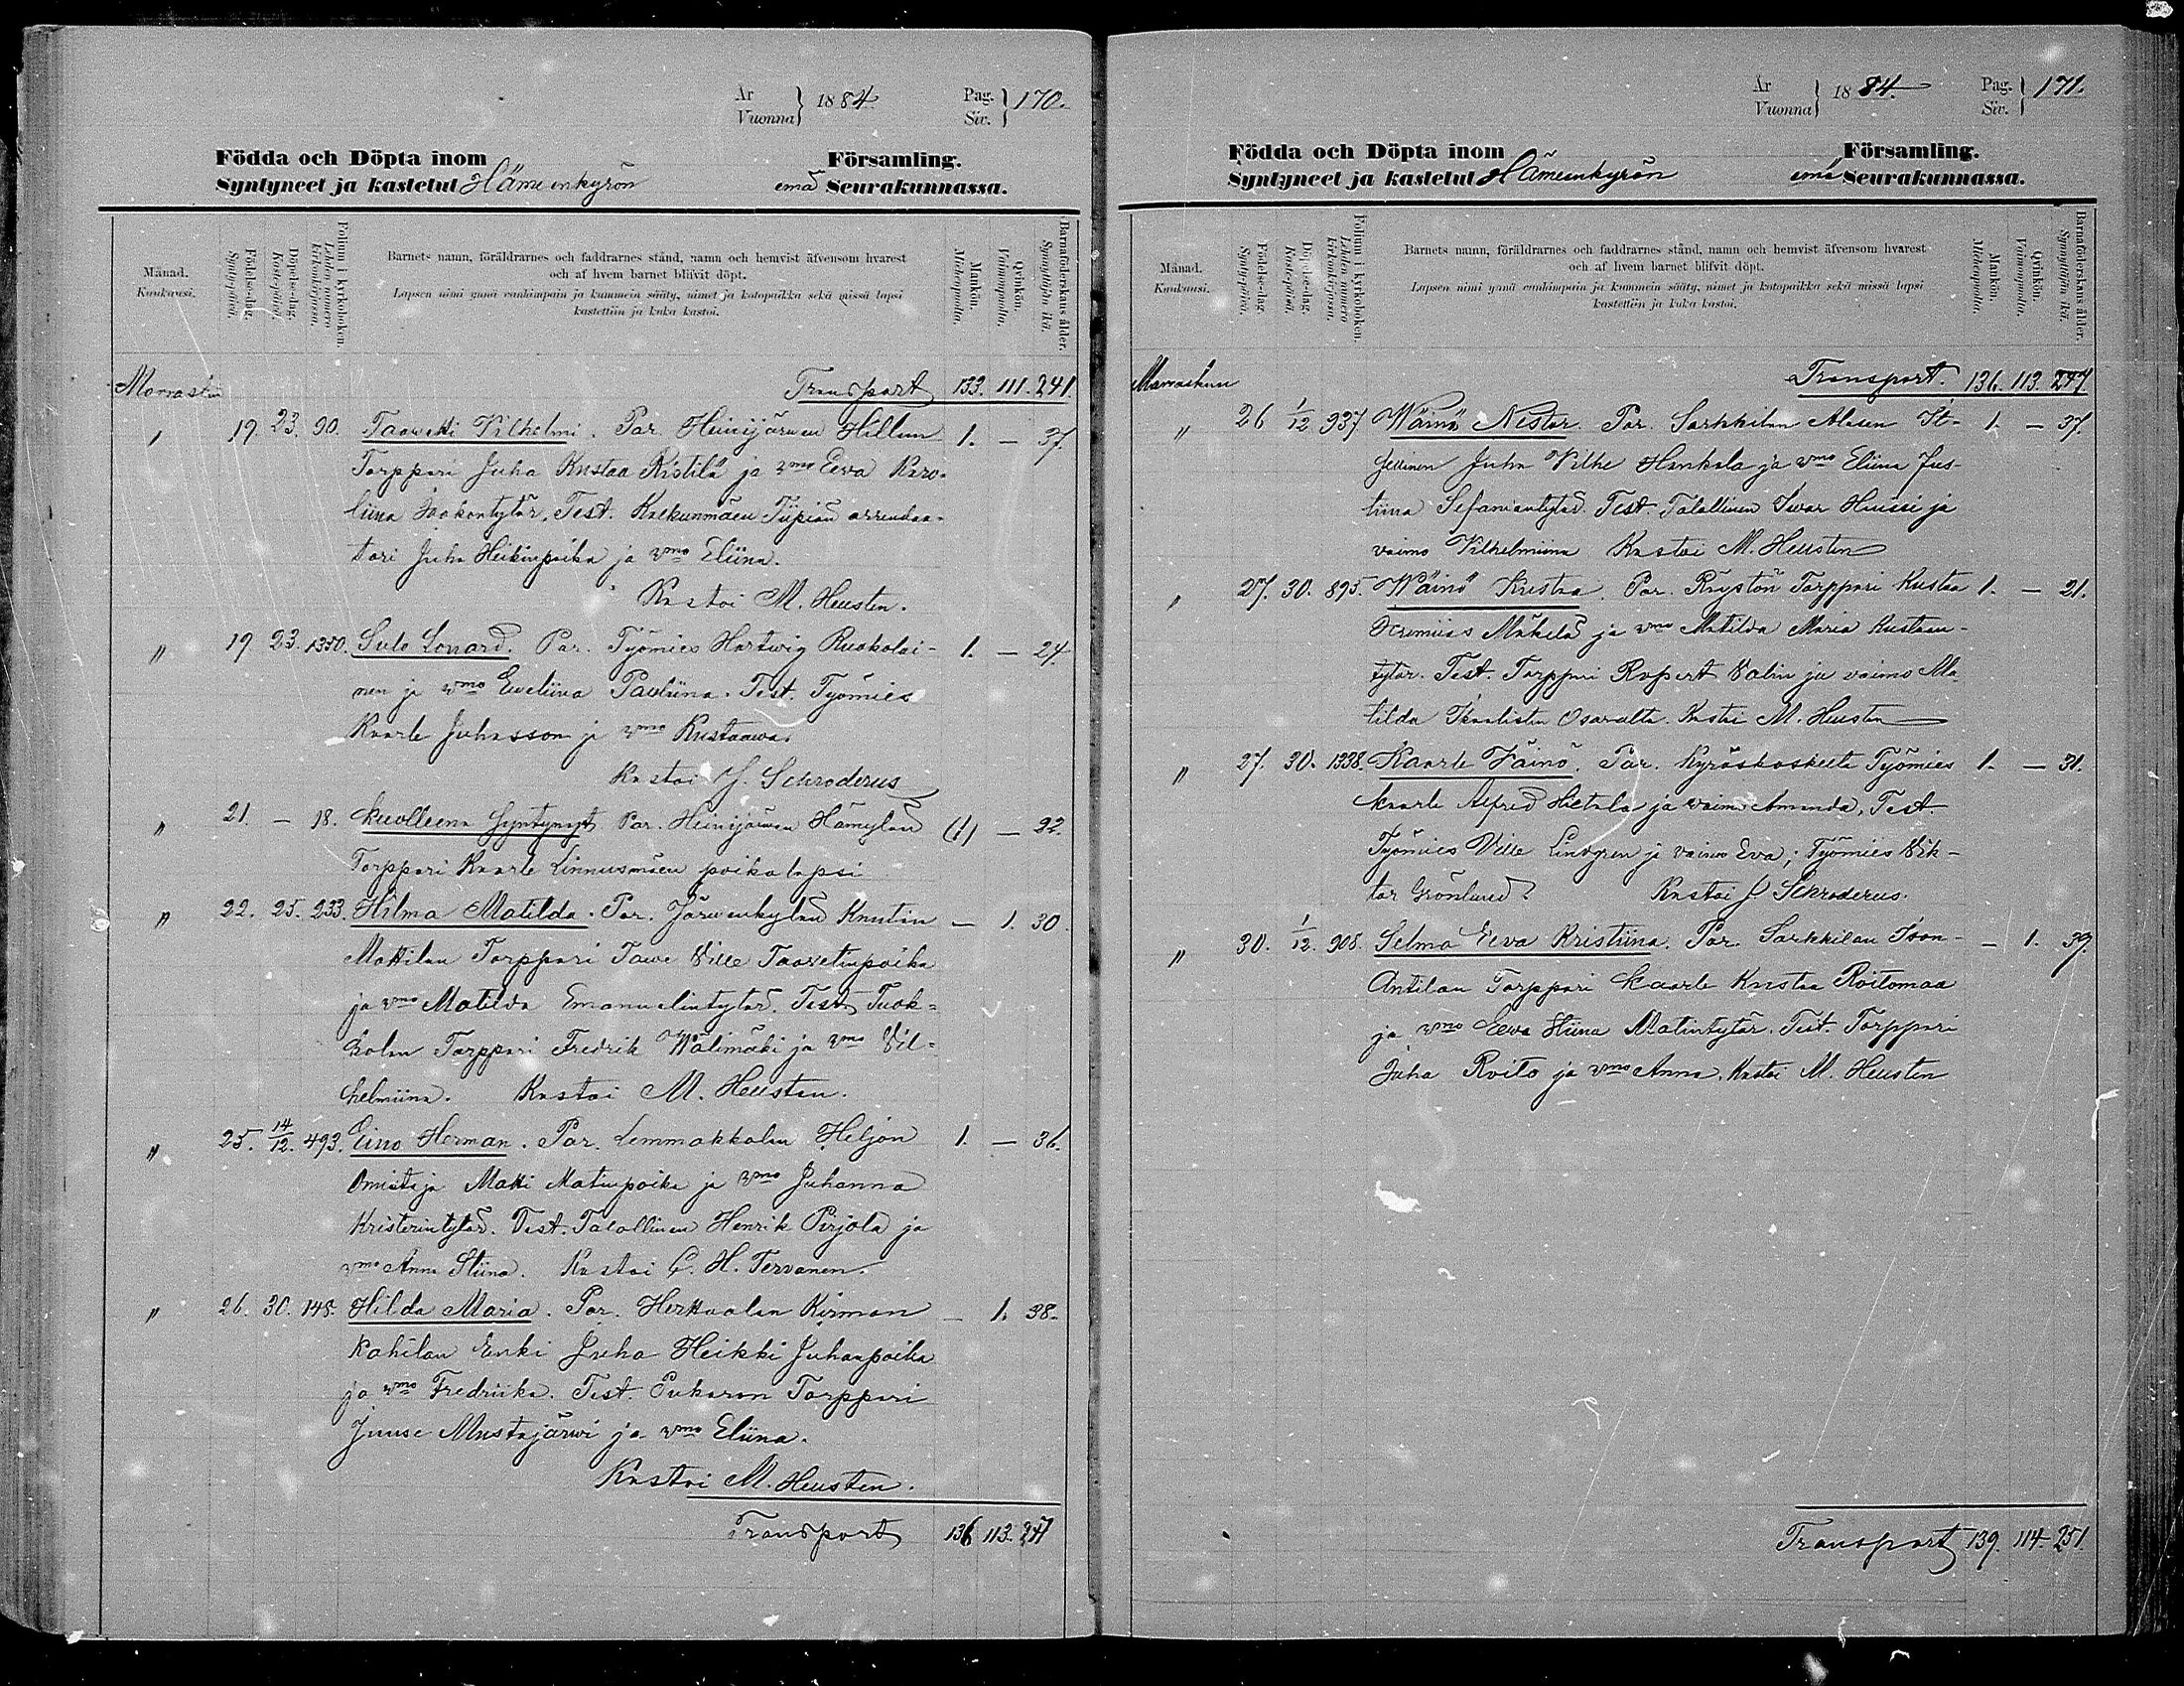 År
Vuonna } 1884
Pag.
Siv. } 170.
Födda och Döpta inom Församling.
Syntyneet ja kastetut Hämeenkyrön emä Seurakunnassa.
Månad.
Kuukausi.
Födelse-dag.
Syntymä-päivä.
Döpelse-dag.
Kaste-päivä.
Folium i kyrkoboken.
Lehden numero kirkonkirjassa.
Barnets namn, föräldrarnes och faddrarnes stånd, namn och hemvist äfvensom hvarest
och af hvem barnet blifvit döpt.
Lapsen nimi ynnä vanhimpain ja kummein sääty, nimet ja kotopaikka sekä missä lapsi
kastettiin ja kuka kastoi.
Mankön.
Miehenpuolia.
Qvinkön.
Vaimonpuolia.
Barnaföderskans ålder.
Synnyttäjän ikä.
Marrask:n Transport 133. 111. 241.
" 19. 23. 90. Taavetti Vilhelmi. Par. Heinijärwen Hillun 1. — 37.
Torppari Juha Kustaa Ristilä ja vmo Eeva Karo-
liina Jaakontytär. Test. Kalkunmäen Tiipiän arrendaa-
tori Juha Heikinpoika ja vmo Eliina.
Kastoi M. Heusten.
" 19 23. 1350. Sulo Lonard. Par. Työmies Hartwig Ruokolai- 1. — 24.
nen ja vmo Eweliina Pauliina. Test. Työmies
Kaarle Juhasson ja vmo Kustaawa.
Kastoi J. Schroderus
" 21. — 18. Kuolleena Syntynyt. Par. Heinijärwen Hämylän (1) — 32.
Torppari Kaarle Linnusmäen poikalapsi
" 22. 25. 233. Hilma Matilda. Par. Järwenkylän Knutin — 1. 30.
Mattilan Torppari Tawe Ville Taavetinpoika
ja vmo Matilda Emanuelintytär. Test. Tuok-
kolan Torppari Fredrik Wälimäki ja vmo Vil-
helmiina. Kastoi M. Heusten.
" 25. 14/12. 493. Eino Herman. Par. Lemmakkalan Heljon 1. — 36.
Omistaja Matti Matinpoika ja vmo Juhanna
Kristerintytär. Test. Talollinen Henrik Pirjola ja
vmo Anna Stiina. Kastoi C. H. Tervonen.
" 26. 30. 148. Hilda Maria. Par. Herttualan Kirman — 1. 38.
Kahilan Enki Juha Heikki Juhanpoika
ja vmo Fredriika. Test. Pukaron Torppari
Juuse Mustajärwi ja vmo Eliina.
Kastoi M. Heusten.
Transport 136 113. 247
År
Vuonna } 1884.
Pag.
Siv. } 171.
Födda och Döpta inom Församling.
Syntyneet ja kastetut Hämeenkyrön emä Seurakunnassa.
Månad.
Kuukausi.
Födelse-dag
Syntymä-päivä.
Döpelse-dag.
Kaste-päivä.
Folium i kyrkoboken.
Lehden numero kirkonkirjassa.
Barnets namn, föräldrarnes och faddrarnes stånd, namn och hemvist äfvensom hvarest
och af hvem barnet blifvit döpt.
Lapsen nimi ynnä vanhimpain ja kummein sääty, nimet ja kotopaikka sekä missä lapsi
kastettiin ja kuka kastoi.
Mankön.
Miehenpuolia.
Qvinkön.
Vaimonpuolia.
Barnaföderskans ålder.
Synnyttäjän ikä.
Marraskuu Transport. 136. 113. 247
" 26 1/12 937 Wäinö Nestor. Par. Sarkkilan Alasen It- 1. — 37.
sellinen Juha Vilhe Hankala ja vmo Eliina Jus-
tiina Sefaniantytär. Test. Talollinen Iwar Huissi ja
vaimo Vilhelmiina Kastoi M. Heusten
" 27. 30. 895. Wäinö Kustaa. Par. Röystön Torppari Kustaa 1. — 21.
Jeremiias Mäkelä ja vmo Matilda Maria Kustaan-
tytär. Test. Torppari Ropert Valin ja vaimo Ma
tilda Ikaalisten Osaralta. Kastoi M. Heusten
" 27. 30. 1338. Kaarle Wäinö. Par. Kyröskoskelta Työmies 1. — 31.
Kaarle Alfred Hietala ja vaimo Amanda. Test.
Työmies Ville Lindgren ja vaimo Eva; Työmies Vik-
tor Grönlund. Kastoi J Schroderus.
" 30. 1/12. 908. Selma Eeva Kristiina. Par. Sarkkilan Ison- — 1. 39.
Antilan Torppari Kaarle Kustaa Roitomaa
ja vmo Eeva Stiina Matintytär. Test. Torppari
Juha Roito ja vmo Anna. Kastoi M. Heusten
Transport 139. 114. 251.